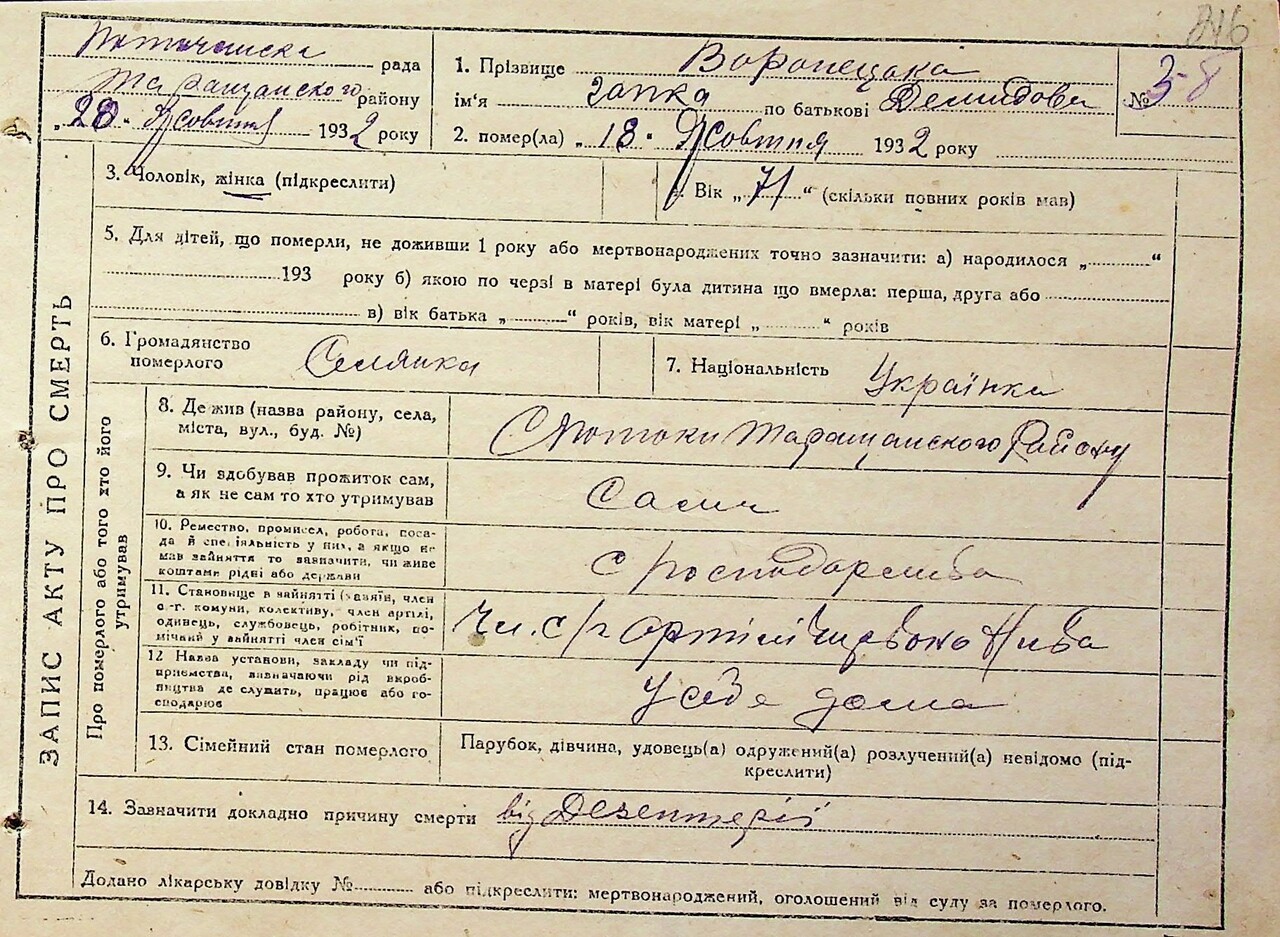 246
Поточанска рада
Таращанского району
„28" Жовтня 1932 року
1. Прізвище Воропецька
ім'я Гапка по батькові Демидовн
№ 38
2. помер(ла) „18" Жовтня 1932 року
ЗАПИС АКТУ ПРО СМЕРТЬ
3. Чоловік, жінка (підкреслити)
4. Вік „71" (скільки повних років мав)
5. Для дітей, що померли, не доживши 1 року або мертвонароджених точно зазначити: а) народилося „ “
193 року б) якою по черзі в матері була дитина що вмерла: перша, друга або
в) вік батька „ “ років, вік матері „ “ років
6. Громадянство
померлого Селянка
7. Національність Українка
Про померлого або того хто його
утримував
8. Де жив (назва району, села,
міста, вул., буд. №)
С Потоки Таращанского Району
9. Чи здобував прожиток сам,
а як не сам то хто утримував
Сами
10. Ремество, промисел, робота, поса-
да й спеціяльність у них, а якщо не
мав зайняття то зазначити, чи живе
коштами рідні або держави
с господарства
11. Становище в зайнятті (хазяїн, член
с.-г. комуни, колективу, член артілі,
одинець, службовець, робітник, по-
мічний у зайнятті член сім'ї
Чл. с/г артіли Червона Нива
12 Назва установи, закладу чи під-
приємства, визначаючи рід вироб-
ництва де служить, працює або го-
сподарює
У себе дома
13. Сімейний стан померлого
Парубок, дівчина, удовець(а) одружений(а) розлучений(а) невідомо (під-
креслити)
14. Зазначити докладно причину смерти від Дезентерії
Додано лікарську довідку № або підкреслити: мертвонароджений, оголошений від суду за померлого.